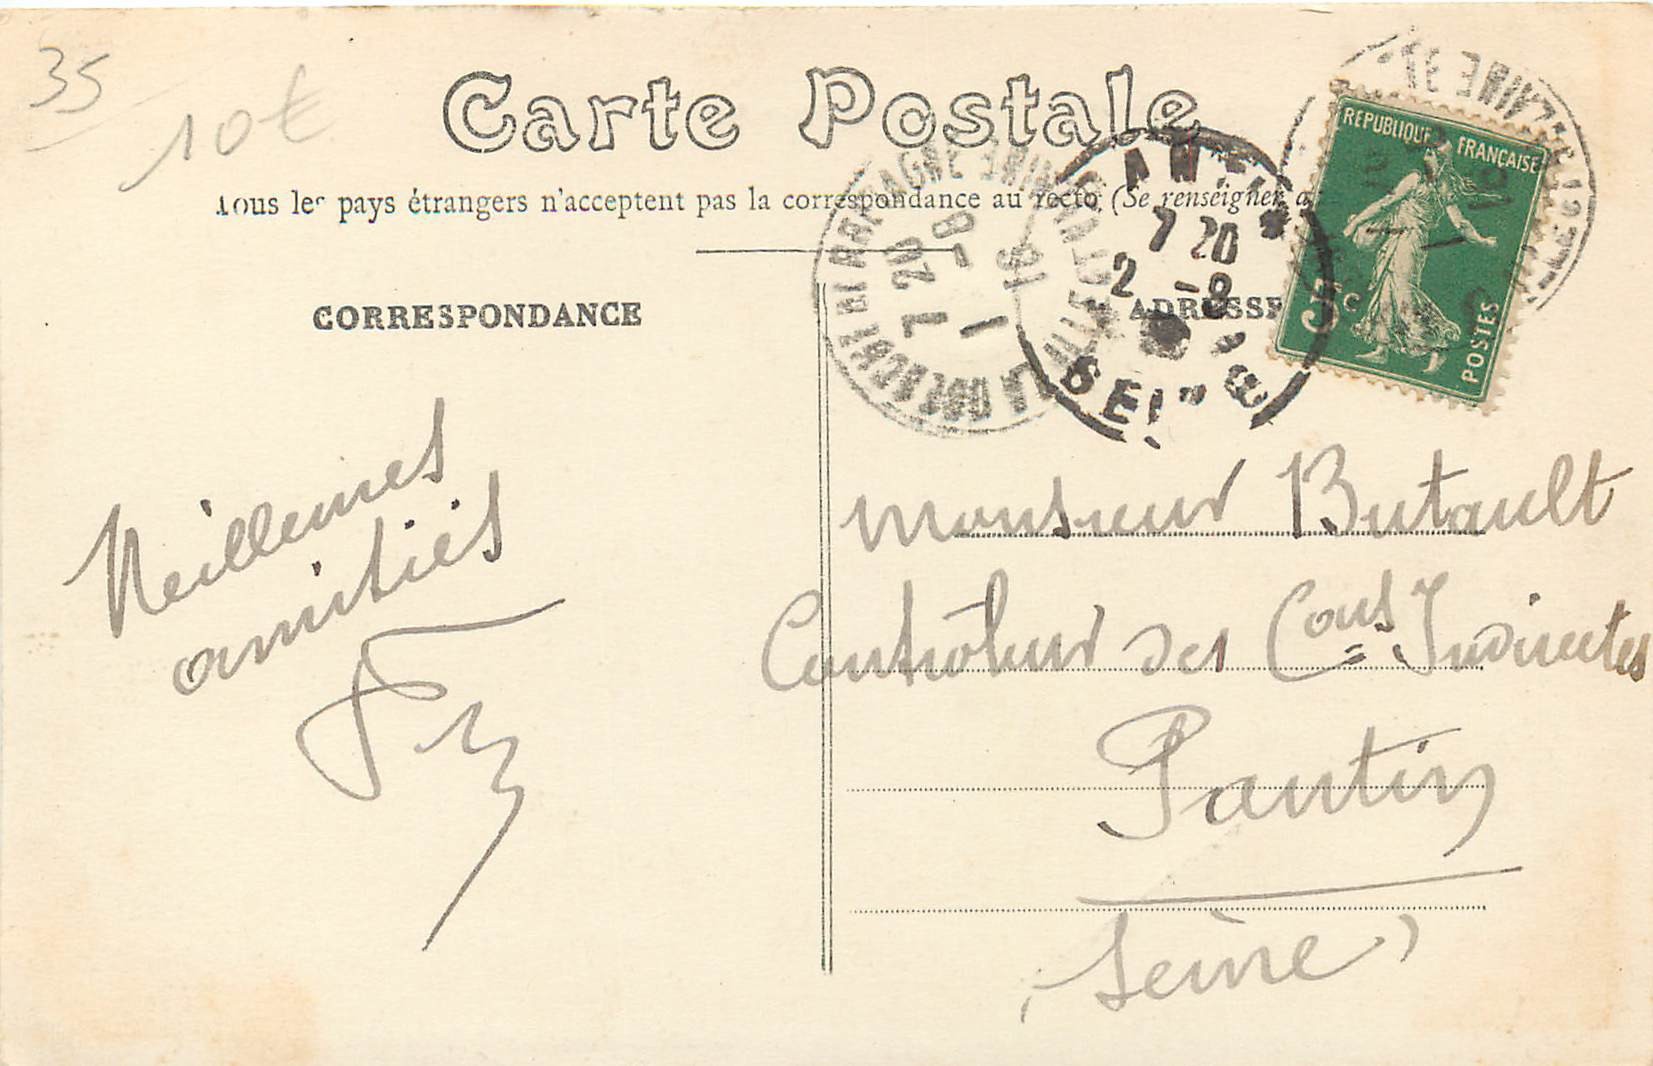 35
10€
Carte Postale
Tous les pays étrangers n'acceptent pas la correspondance au recto (Se renseigner a
CORRESPONDANCE
ADRESSE
REPUBLIQUE FRANÇAISE
5c
POSTES
7 20
2 -8
SEINE
Meilleures
amitiés
Monsieur Butault
Contrôleur des Cous Indirectes
Pantin
(Seine)